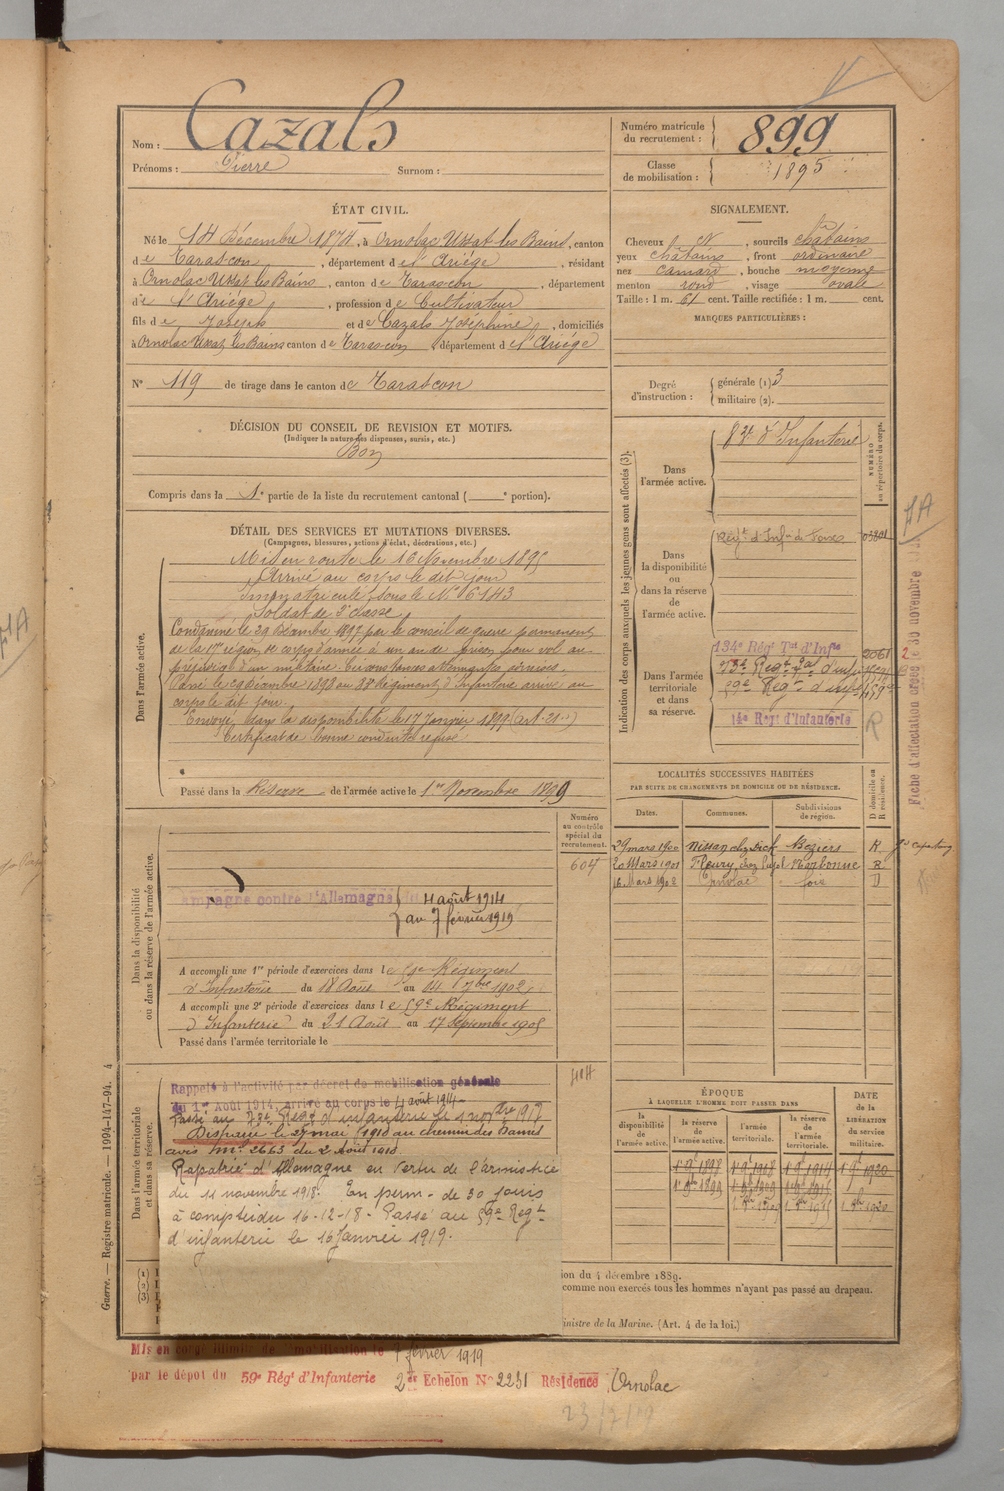 Nom : Cazals
Prénoms : Pierre Surnom :
Numéro matricule du recrutement : 899
Classe de mobilisation : 1895
ÉTAT CIVIL.
Né le 14 Décembre 1874, à Ornolac Ussat les Bains, canton
de Tarascon, département de l'Ariège, résidant
à Ornolac Ussat les Bains, canton de Tarascon, département
de l'Ariège, profession de Cultivateur
fils de Joseph et de Cazals Joséphine, domiciliés
à Ornolac Ussat les Bains canton de Tarascon, département de l'Ariège
N° 119 de tirage dans le canton de Tarascon
SIGNALEMENT.
Cheveux N, sourcils châtains
yeux châtains, front ordinaire
nez camard, bouche moyenne
menton rond, visage ovale
Taille : 1 m. 61 cent. Taille rectifiée : 1 m. cent.
MARQUES PARTICULIÈRES :
Degré d'instruction : générale (1) 3
militaire (2).
DÉCISION DU CONSEIL DE REVISION ET MOTIFS.
(Indiquer la nature des dispenses, sursis, etc.)
Bon
Compris dans la 1e partie de la liste du recrutement cantonal ( e portion).
DÉTAIL DES SERVICES ET MUTATIONS DIVERSES.
(Campagnes, blessures, actions d'éclat, décorations, etc.)
Dans l'armée active.
Mis en route le 16 Novembre 1895
Arrivé au corps le dit jour
Immatriculé sous le N° 6143
Soldat de 2e classe
Condamné le 29 Décembre 1897 par le conseil de guerre permanent
de la 17e région de corps d'armée à un an de prison pour vol au
préjudice d'un militaire. Circonstances atténuantes admises.
Passé le 29 Décembre 1898 au Régiment d'Infanterie arrivé au
corps le dit jour.
Envoyé dans la disponibilité le 17 Janvier 1899 (art. 21)
Certificat de bonne conduite refusé
Passé dans la Réserve de l'armée active le 1er Novembre 1899
Indication des corps auxquels les jeunes gens sont affectés (3).
NUMÉRO au répertoire du corps.
Dans l'armée active. d'Infanterie
Dans la disponibilité ou dans la réserve de l'armée active. Régt d'Infie de Foix
Dans l'armée territoriale et dans sa réserve.
134e Rég Tal d'Infie 2061
73e Régt Tal d'inf
59e Régt d'inf
14e Régt d'Infanterie
R
Fiche d'affectation créée le 30 novembre
LOCALITÉS SUCCESSIVES HABITÉES
PAR SUITE DE CHANGEMENTS DE DOMICILE OU DE RÉSIDENCE.
Dates. Communes. Subdivisions de région. D domicile ou R résidence.
29 mars 1900 Nissan Béziers R
20 Mars 1901 Fleury, chez Narbonne R
16 Mars 1902 Ornolac Foix D
Numéro au contrôle spécial du recrutement.
604
Dans la disponibilité ou dans la réserve de l'armée active.
Campagne contre l'Allemagne du 4 août 1914
au 7 février 1919
A accompli une 1re période d'exercices dans le 59e Régiment
d'Infanterie du 18 Août au 14 7bre 1902.
A accompli une 2e période d'exercices dans le 59e Régiment
d'Infanterie du 21 Août au 17 Septembre 1905
Passé dans l'armée territoriale le
Dans l'armée territoriale et dans sa réserve.
Rappelé à l'activité par décret de mobilisation générale
du 1er Août 1914, arrivé au corps le 4 août 1914
Passé au Régt d'infanterie le 1 novbre 1917
Disparu le 27 mai 1918 au chemin des Dames
avis N° 2663 du 2 Août 1918
Rapatrié d'Allemagne en vertu de l'armistice
du 11 novembre 1918. En perm. de 30 jours
à compter du 16-12-18. Passé au 59e Régt
d'infanterie le 16 Janvier 1919.
ÉPOQUE
À LAQUELLE L'HOMME DOIT PASSER DANS
la disponibilité de l'armée active. la réserve de l'armée active. l'armée territoriale. la réserve de l'armée territoriale.
DATE de la LIBÉRATION du service militaire.
(1)
(2)
(3)
ion du 4 décembre 1889.
comme non exercés tous les hommes n'ayant pas passé au drapeau.
inistre de la Marine. (Art. 4 de la loi.)
Guerre. — Registre matricule. — 1994-147-94. 4
Mis en congé illimité de mobilisation le 7 février 1919
par le dépôt du 59e Régt d'Infanterie 2er Echelon N° 2231 Résidence Ornolac